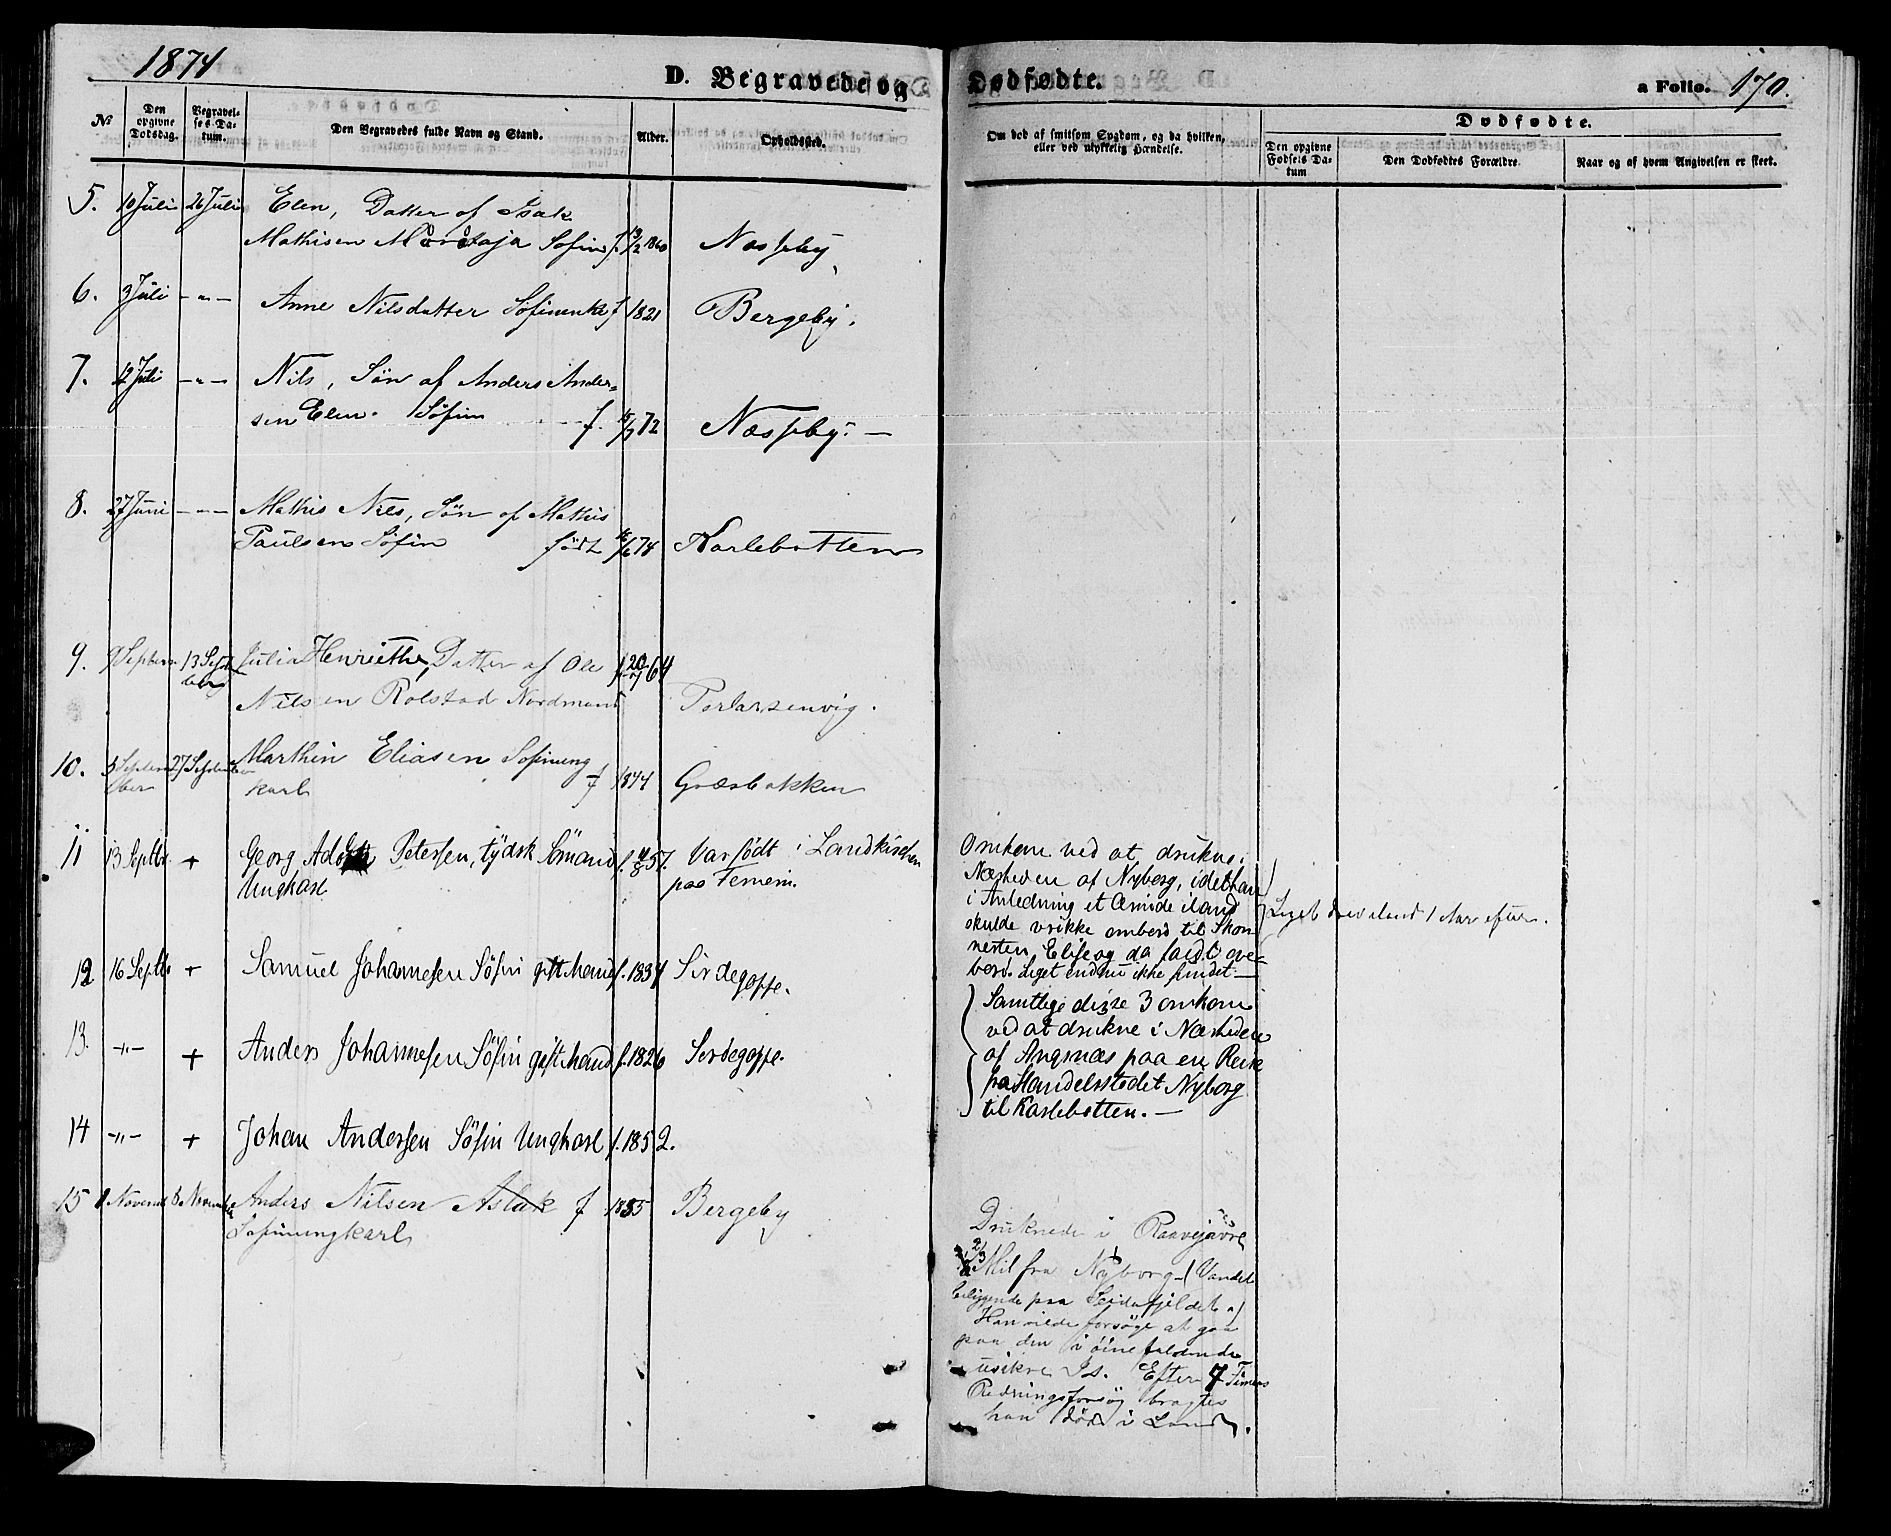 1874
D. Begravede og Dødfødte.
a Folio. 170.
No
Den opgivne Dødsdag.
Begravelses Datum.
Den Begravedes fulde Navn og Stand.
Alder.
Opholdssted.
Om død af smitsom Sygdom, og da hvilken, eller ved ulykkelig Hændelse.
Dødfødte.
Den opgivne Fødsels Datum
Den Dødfødtes Forældre.
Naar og af hvem Angivelsen er skeet.
5. 10 Juli 26 Juli Elen, Datter af Isak
Mathisen Søfin f 13/2 1860 Næsseby
6. 3 Juli -"- Anne Nilsdatter Søfinenke f 1821 Bergeby.
7. 12 Juli -"- Nils, Søn af Anders Ander-
sen Elen. Søfin f. 72 Næsseby. —
8. 27 Juni -"- Mathis Niels, Søn af Mathis
Paulsen Søfin født 74 Karlebotten
9. 9 Septem 13 Septber Julia Henriethe, Datter af Ole f 20/7 64
Nilsen Rolstad Nordmand Perlarsenvig.
10. 3 September 27 September Marthin Eliasen Søfinung
karl f 1844 Græsbakken
11 13 Septbr. + Georg Adolph Petersen, tydsk Sömand f. 57. Var födt i Landkirchen
Ungkarl paa Femern.
Omkom ved at drukne i
Nærheden af Nyborg, idet han
i Anledning et Ærinde iland
skulde vrikke ombord til Skon-
nerten Elise og da faldt over-
bord. Liget endnu ikke fundet. —
Liget drev iland 1 Aar efter.
12 16 Septbr + Samuel Johannesen Söfin gift Mand f. 1834 Sirdegoppe.
13. -"- + Anders Johannesen Söfin gift Mand f. 1826 Serdegoppe.
14 -"- + Johan Andersen Söfin Ungkarl f. 1852.
Samtlige disse 3 omkom
ved at drukne i Nærheden
af Angsnæs paa en Reise
fra Handelsstedet Nyborg
til Karlebotten. —
15 1 Novemb 8 November Anders Nilsen Aslak f 1855 Bergeby
Søfinungkarl
Druknede i Raavejavre
2/3 Mil fra Nyborg (Vandet
beliggende paa Seidafjeldet)
Han vilde forsøge at gaa
paa den i öine faldende
usikre Is. Efter 7 Timers
Redningsforsøg bragtes
han död i Land.